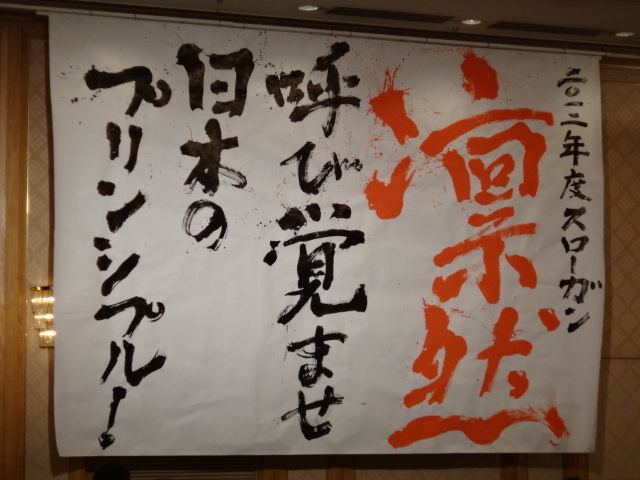 二〇一二年度スローガン
凛然
呼び覚ませ
日本の
プリンシプル!